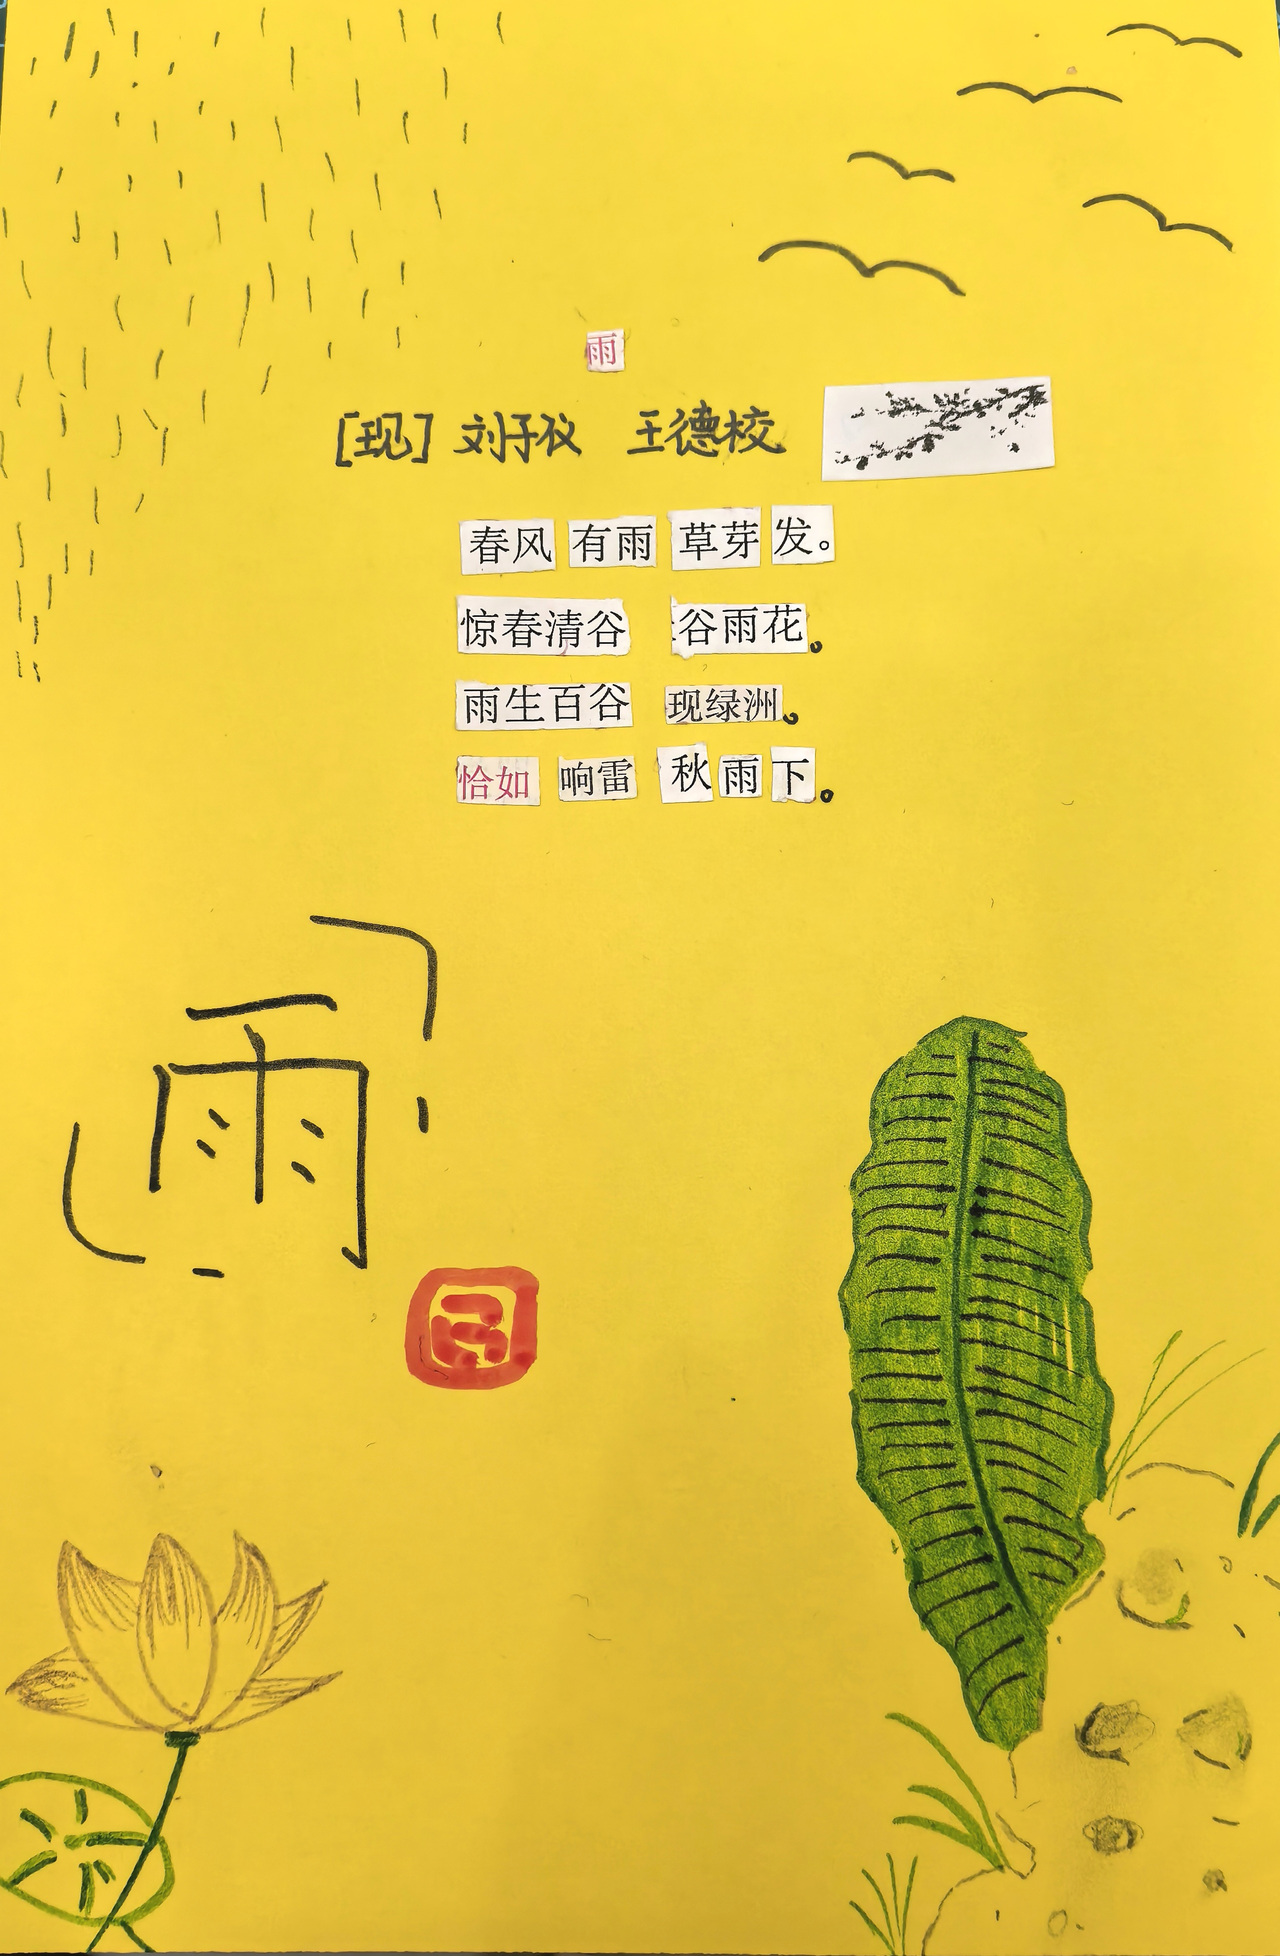 雨
[现] 刘子仪 王德校
春风 有雨 草芽 发。
惊春清谷 谷雨花。
雨生百谷 现绿洲。
恰如 响雷 秋雨下。
雨